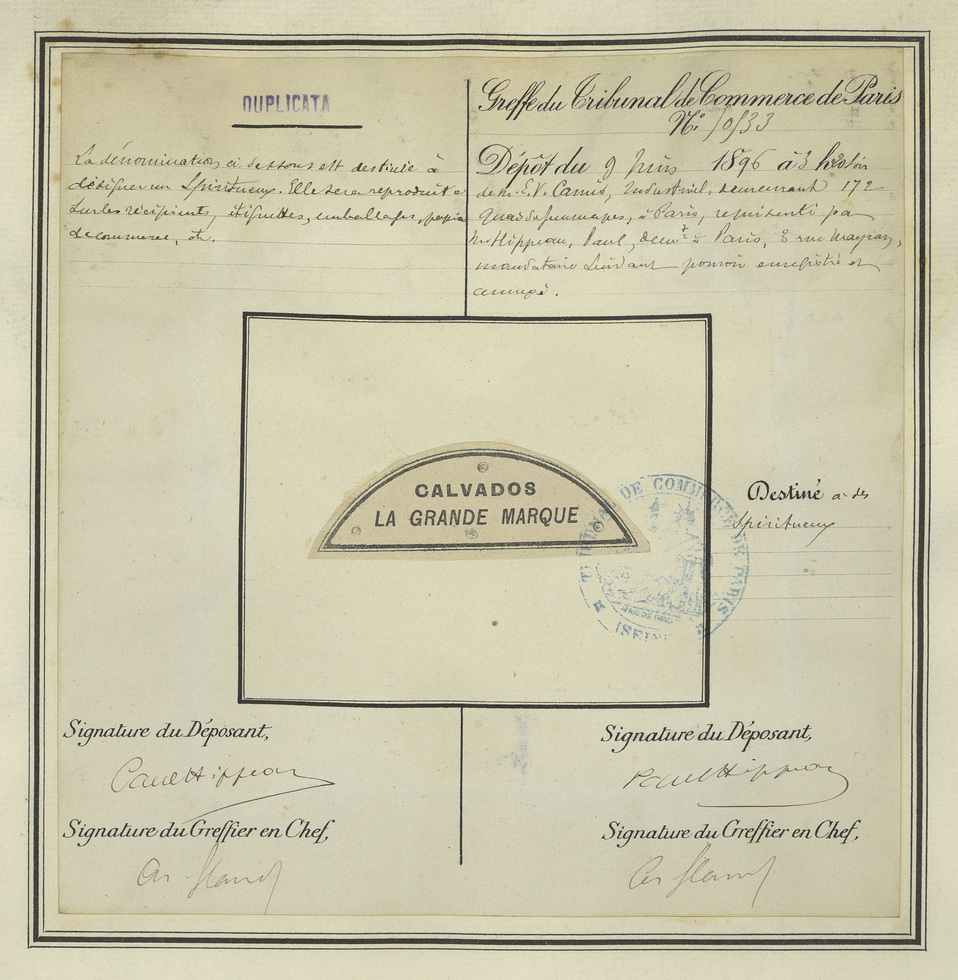 DUPLICATA
La dénomination ci dessous est destinée à
désigner un Spiritueux. Elle sera reproduite
sur les récipients, étiquettes, emballages, papier
de commerce, etc.
Greffe du Tribunal de Commerce de Paris
N°
Dépôt du 9 Juin 1896 à 3 h
de M. E.V. Camis, Industriel, demeurant 172
quai de Jemmapes, à Paris, représenté par
Mr Hippeau, Paul, demt à Paris, 8 rue Mayran,
mandataire suivant pouvoir enregistré et
annexé.
CALVADOS
LA GRANDE MARQUE
TRIBUNAL DE COMMERCE DE PARIS
(SEINE)
Destiné à des
Spiritueux
Signature du Déposant,
Paul Hippeau
Signature du Greffier en Chef,
Signature du Déposant,
Paul Hippeau
Signature du Greffier en Chef,